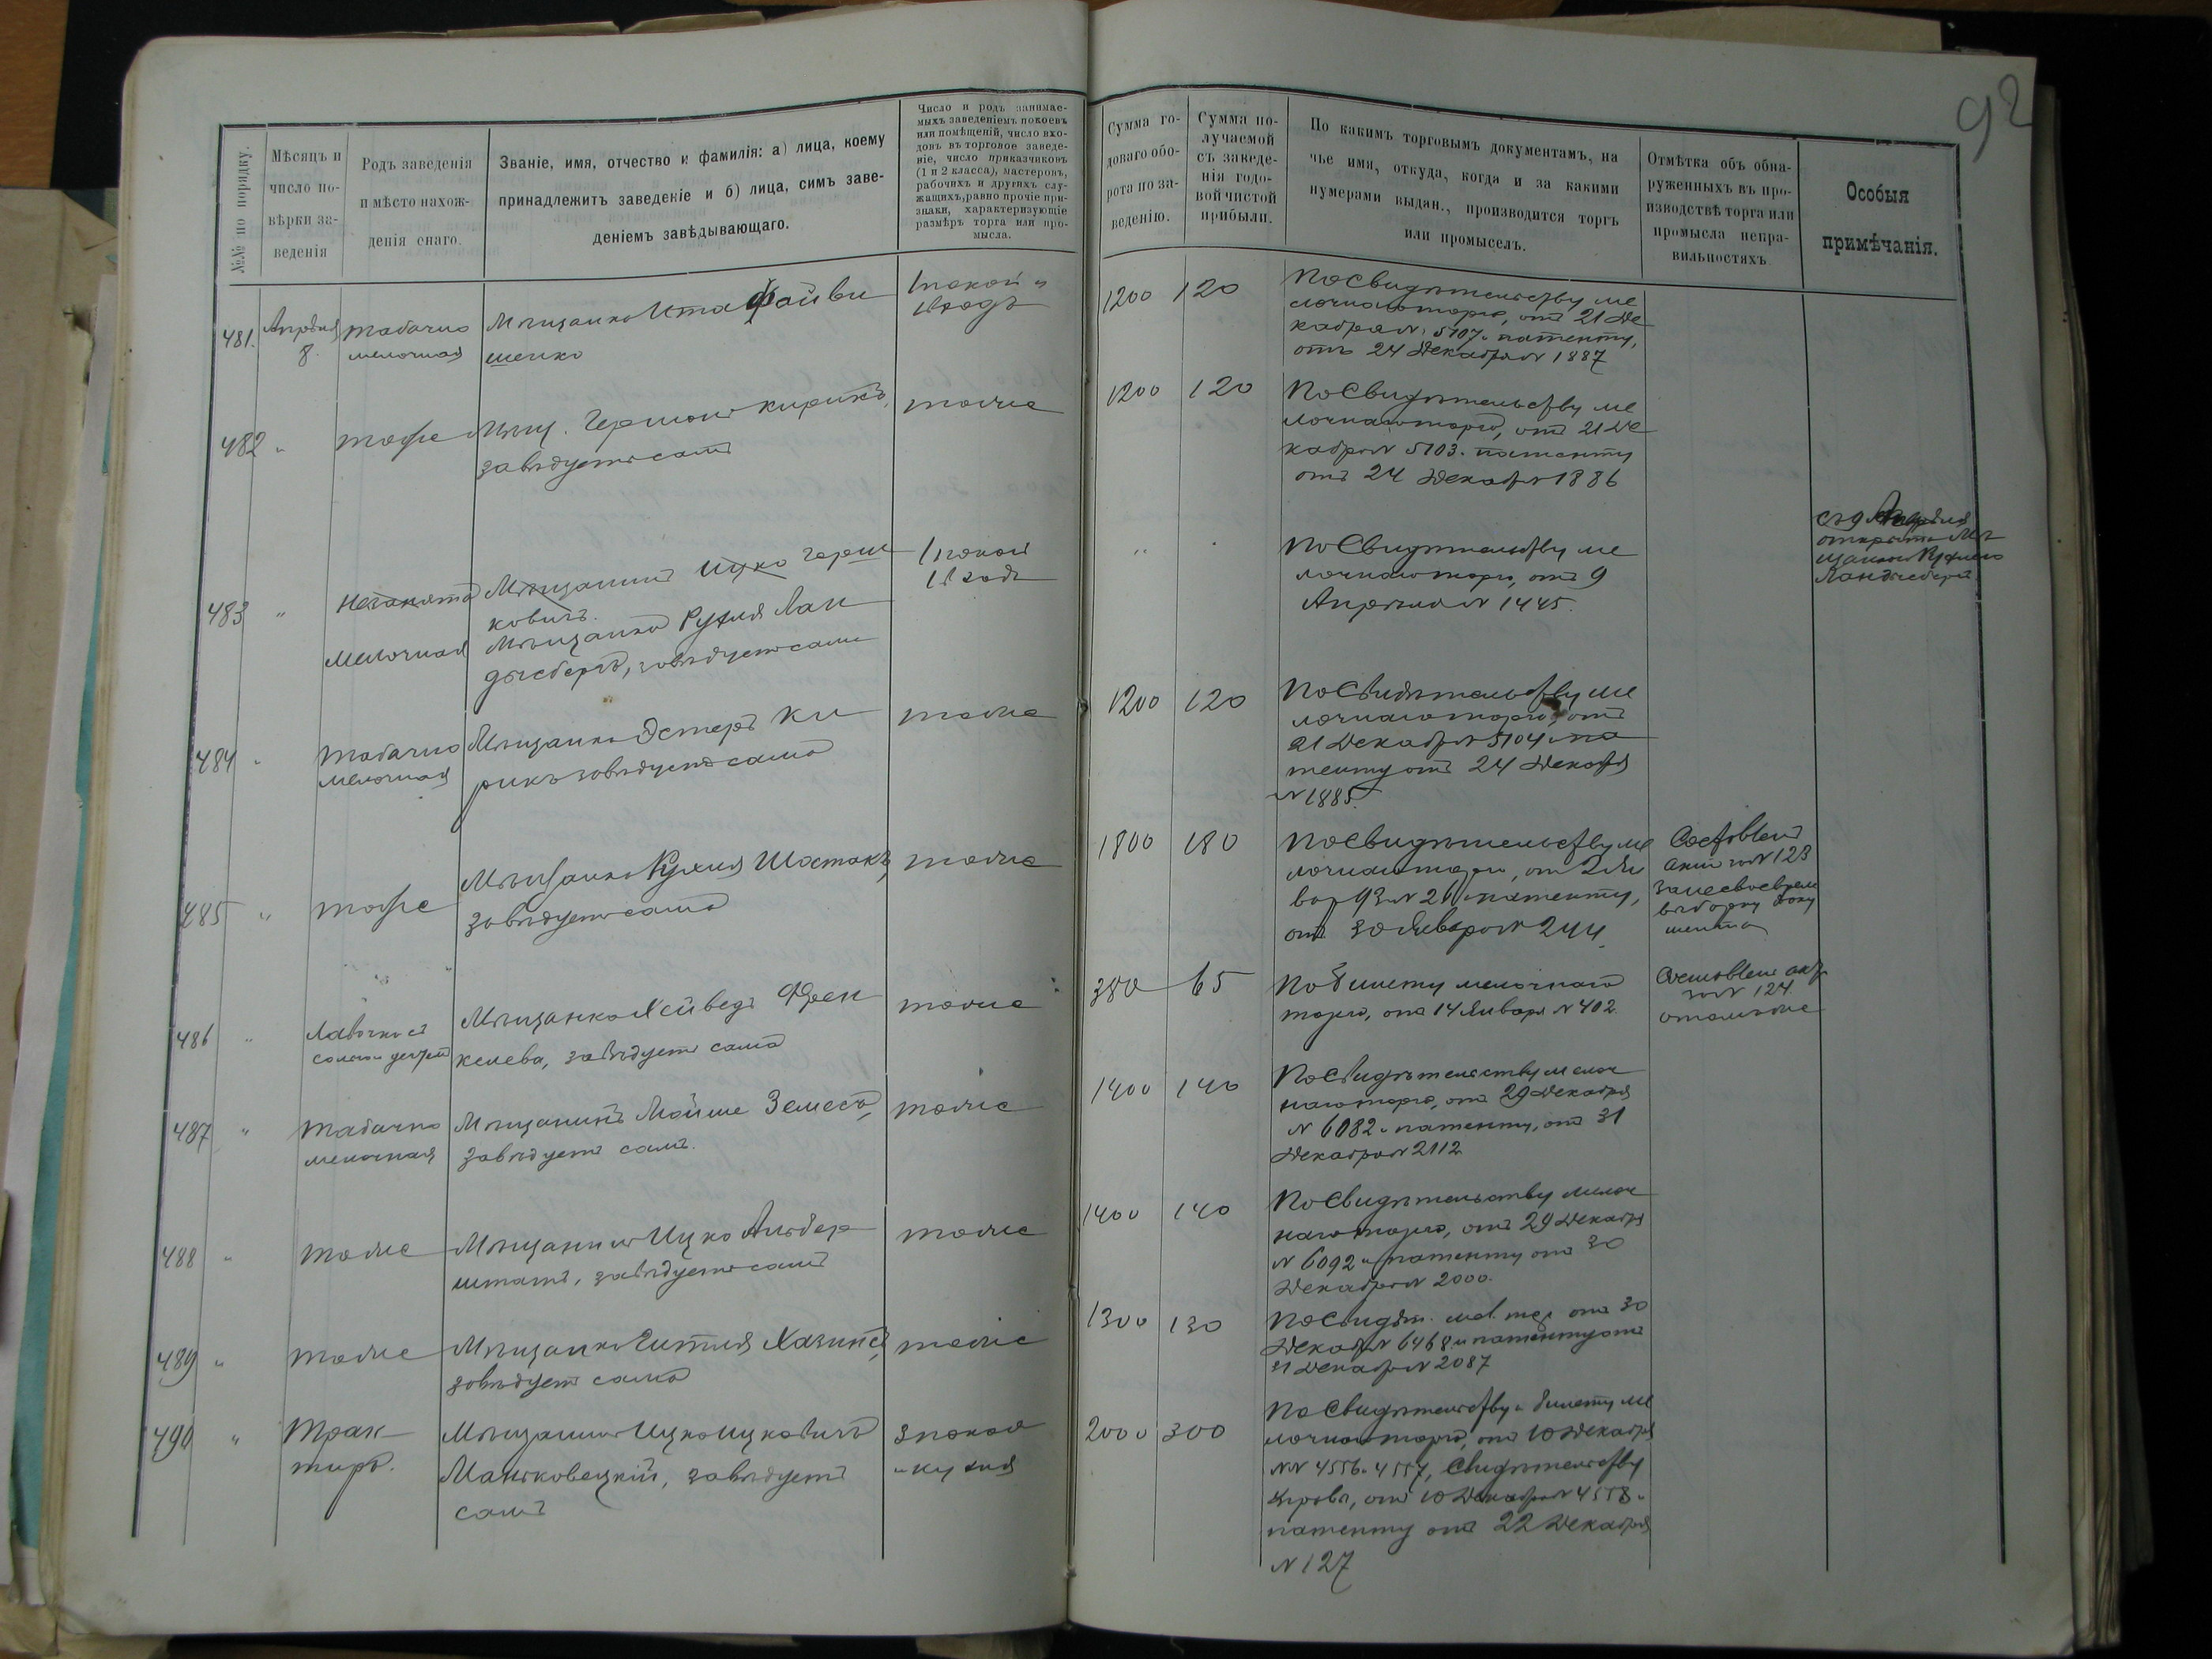 92
№№ по порядку.
Мѣсяцъ и число по-вѣрки за-веденія
Родъ заведенія и мѣсто нахож-денія онаго.
Званіе, имя, отчество и фамилія: а) лица, коему принадлежитъ заведеніе и б) лица, симъ заве-деніемъ завѣдывающаго.
Число и родъ занимае-мыхъ заведеніемъ покоевъ или помѣщеній, число вхо-довъ въ торговое заведе-ніе, число приказчиковъ (1 и 2 класса), мастеровъ, рабочихъ и другихъ слу-жащихъ, равно прочіе при-знаки, характеризующіе размѣръ торга или про-мысла.
Сумма го-доваго обо-рота по за-веденію.
Сумма по-лучаемой съ заведе-нія годо-вой чистой прибыли.
По какимъ торговымъ документамъ, на чье имя, откуда, когда и за какими нумерами выдан., производится торгъ или промыселъ.
Отмѣтка объ обна-руженныхъ въ про-изводствѣ торга или промысла непра-вильностяхъ
Особыя примѣчанія.
481. Апрѣля 8. Табачно мелочная
Мѣщанка Ита Файви
шенко
1 покой и
1 входъ
1200 120
По Свидѣтельству ме
лочнаго торга, отъ 21 Де
кабря № 5107 и патенту,
отъ 24 Декабря № 1887
482 " тоже
Мѣщ. Гершонъ Кирикъ,
завѣдуетъ самъ
тоже
1200 120
По Свидѣтельству ме
лочнаго торга, отъ 21 Де
кабря № 5103 и патенту
отъ 24 Декабря № 1886
483 " Незанята
Мѣщанинъ Ицко Герш
ковичъ.
мелочная
Мѣщанка Рухля Лан
дысбергъ, завѣдуетъ сама
1 покой
1 входъ
" "
По Свидѣтельству ме
лочнаго торга, отъ 9
Апрѣля № 1445.
Съ 9 Апрѣля
открыта Мѣ
щанкою Рухлею
Ландысбергъ
484 " Табачно
мелочная
Мѣщанка Эстеръ Ки
рикъ завѣдуетъ сама
тоже
1200 120
По Свидѣтельству ме
лочнаго торга, отъ
21 Декабря № 5104 и па
тенту отъ 24 Декабря
№ 1885.
485 " тоже
Мѣщанка Рухля Шостакъ,
завѣдуетъ сама
тоже
1800 180
По Свидѣтельству ме
лочнаго торга, отъ 2 Ян
варя 93 № 211 и патенту,
отъ 30 Января № 244
Составленъ
актъ за № 123
за несвоеврем
выборку доку
мента
486 " Лавочка съ
Мѣщанка Хейведъ Френ
келева, завѣдуетъ сама
тоже
380 65
По билету мелочнаго
торга, отъ 14 Января № 402.
Составленъ актъ
за № 124
о томъ же
487 " Табачно
мелочная
Мѣщанинъ Мойше Земесъ,
завѣдуетъ самъ.
тоже
1400 140
По Свидѣтельству мелоч
наго торга, отъ 29 Декабря
№ 6082 и патенту, отъ 31
Декабря № 2112
488 " тоже
Мѣщанинъ Ицко Альбер
штатъ, завѣдуетъ самъ
тоже
1400 140
По Свидѣтельству мелоч
наго торга, отъ 29 Декабря
№ 6092 и патенту отъ 30
Декабря № 2000.
489 " тоже
Мѣщанка Гитля Хазинъ,
завѣдуетъ сама
тоже
1300 130
По Свидѣт. мел. тор. отъ 30
Декабря № 6468 и патенту отъ
31 Декабря № 2087
490 " Трак
тиръ.
Мѣщанинъ Ицко Ицковичъ
Маньковецкій, завѣдуетъ
самъ
3 покоя
и кухня
2000 300
По Свидѣтельству и билету ме
лочнаго торга, отъ 10 Декабря
№№ 4556 и 4557, Свидѣтельству
отъ 10 Декабря № 4558 и
патенту отъ 22 Декабря
№ 127